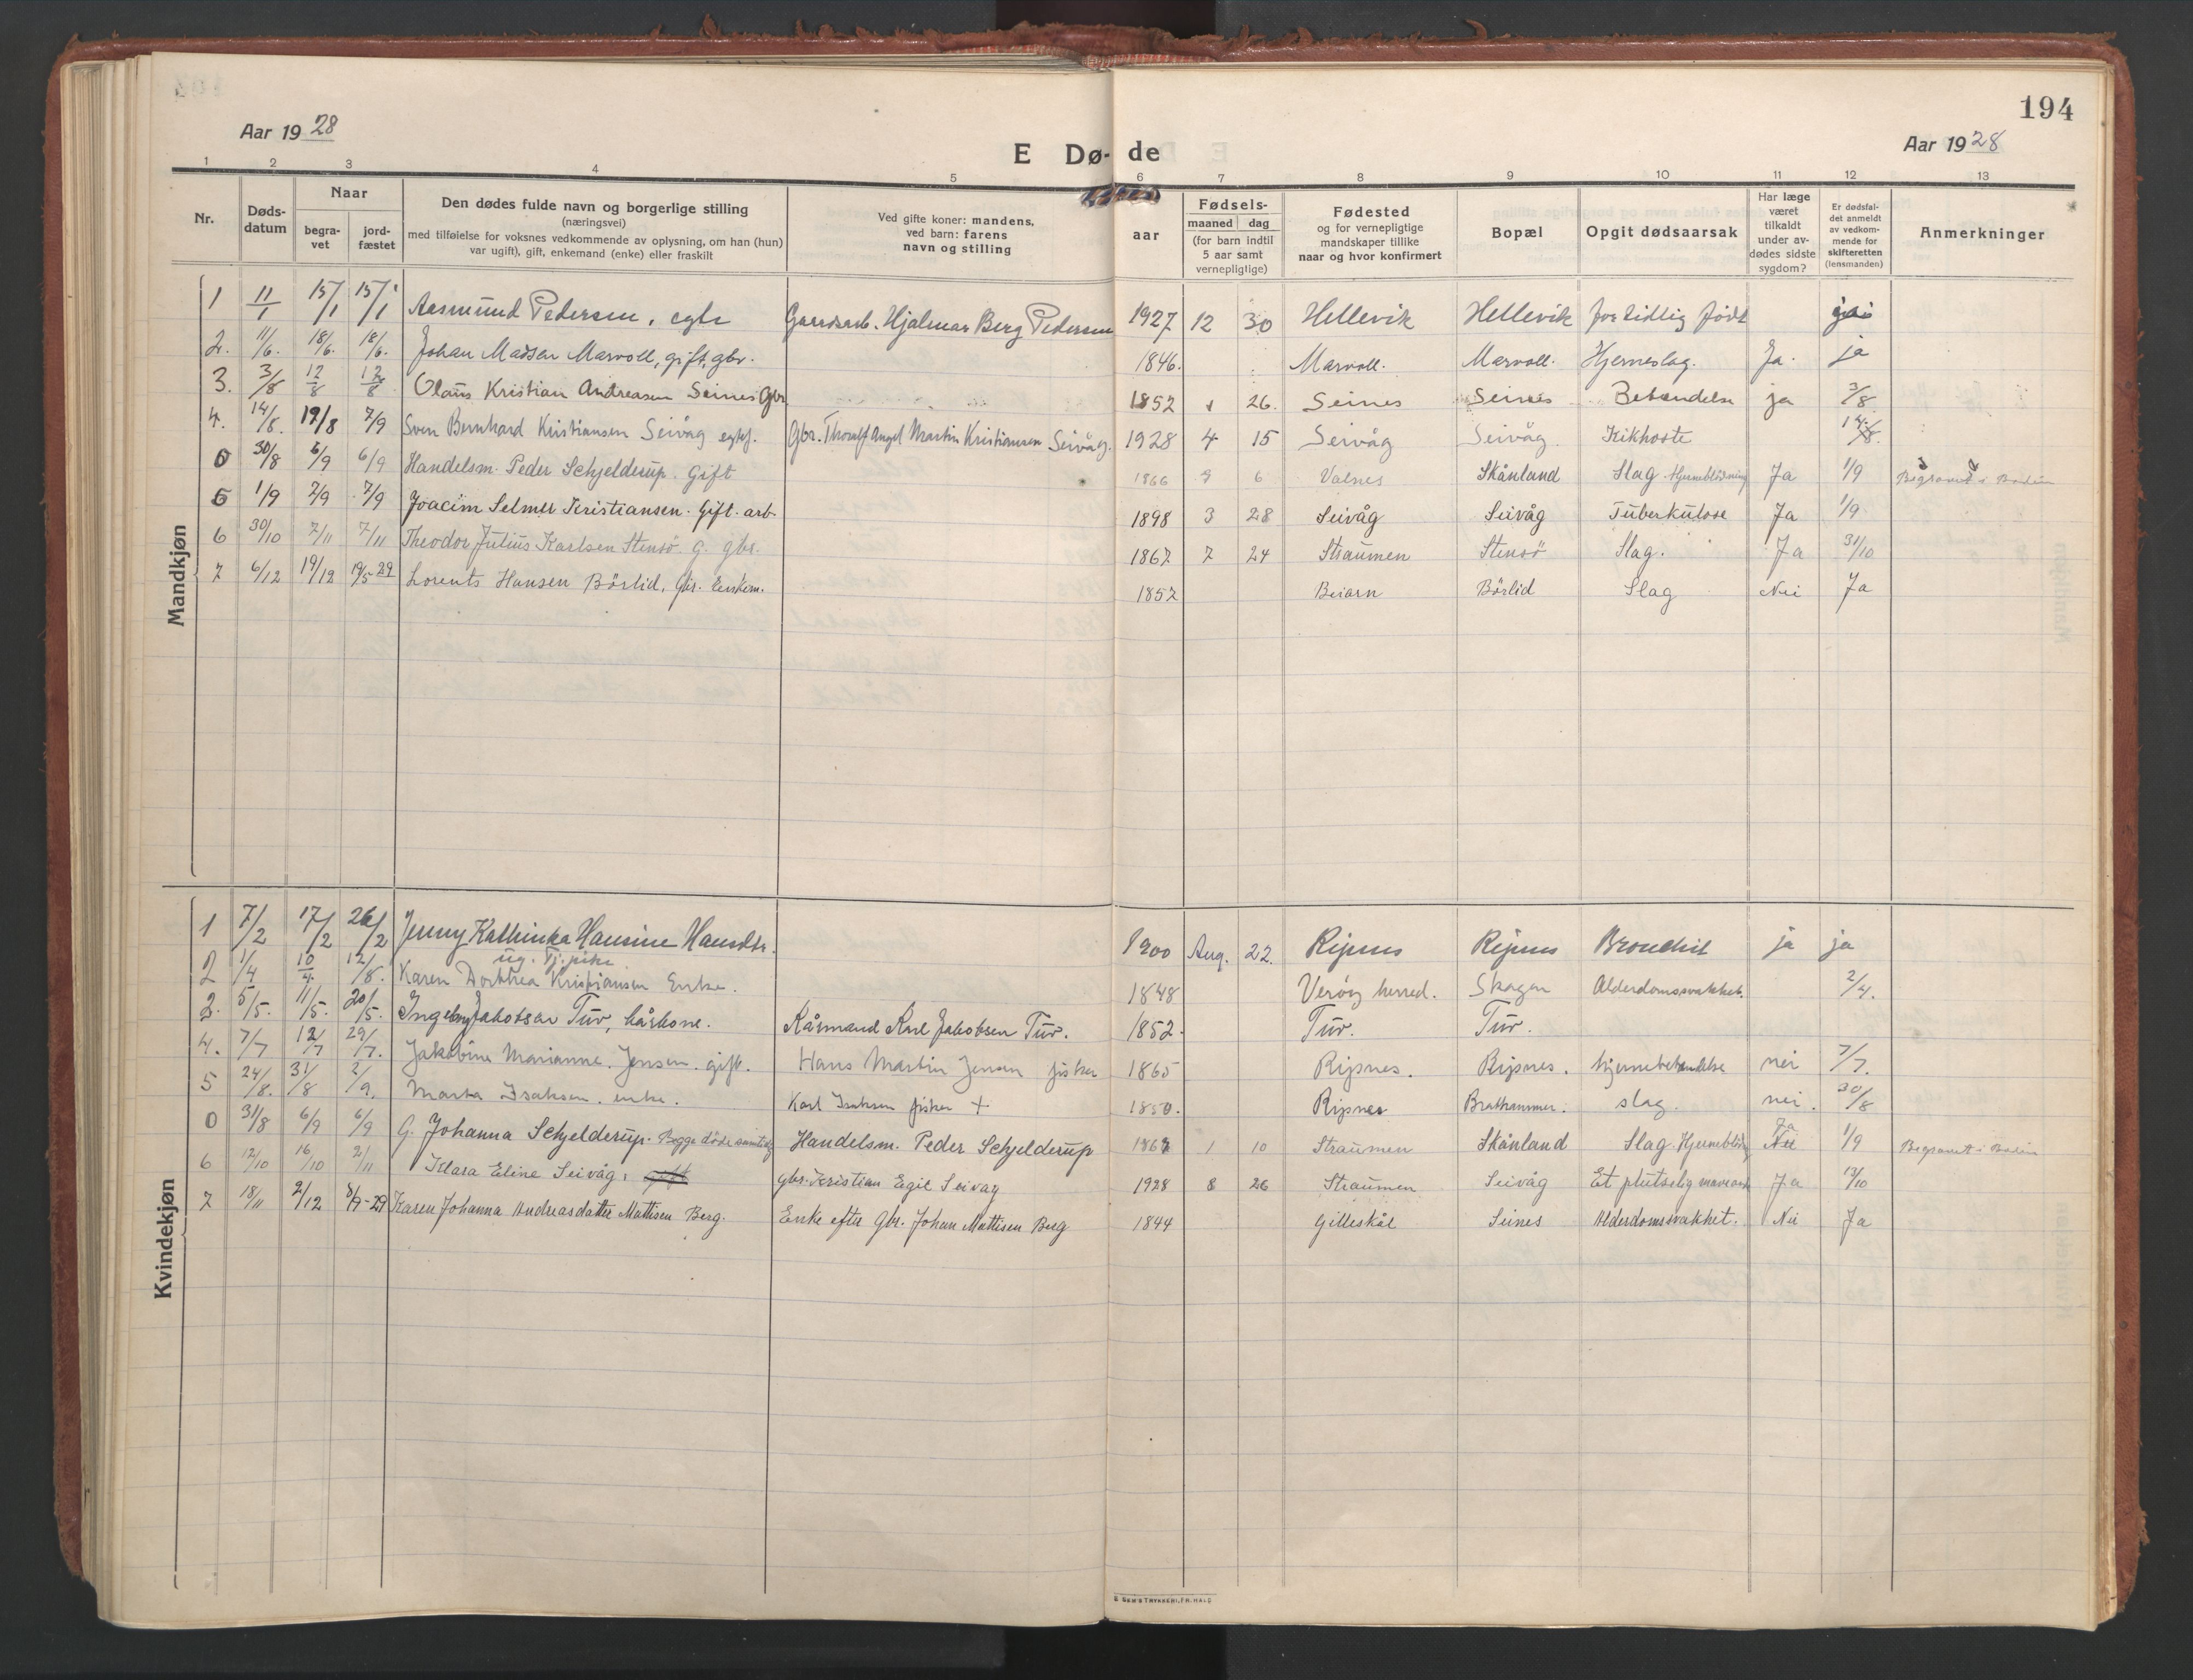 194
Aar 1928
Aar 1928
E Dø- de
1 2 3 4 5 6 7 8 9 10 11 12 13
Nr.
Døds-
datum
Naar
begra-
vet
jord-
fæstet
Den dødes fulde navn og borgerlige stilling
(næringsvei)
med tilføielse for voksnes vedkommende av oplysning, om han (hun)
var ugift), gift, enkemand (enke) eller fraskilt
Ved gifte koner: mandens,
ved barn: farens
navn og stilling
aar
Fødsels-
maaned dag
(for barn indtil
5 aar samt
vernepligtige)
Fødested
og for vernepligtige
mandskaper tillike
naar og hvor konfirmert
Bopæl
Opgit dødsaarsak
Har læge
været
tilkaldt
under av-
dødes sidste
sygdom?
Er dødsfal-
det anmeldt
av vedkom-
mende for
skifteretten
(lensmanden)
Anmerkninger
Mandkjøn
1 11/1 15/1 15/1 Aasmund Pedersen, egte Gaardsarb. Hjalmar Berg Pedersen 1927 12 30 Hellevik Hellevik for tidlig født ja
2. 11/6. 18/6. 18/6. Johan Madsen Marvoll, gift, gbr. 1846. Marvoll. Marvoll. Hjerneslag. Ja. ja
3. 3/8 12/8 12/8 Olaus Kristian Andreasen Seines Gbr 1852 26. Seines Seines Betendelse ja 3/8
4. 14/8. 19/8 7/9 Sven Bernhard Kristiansen Seivåg egtef. Gbr. Thoralf Angel Martin Kristiansen Seivåg. 1928 4 15 Seivåg Seivåg. Kikhoste 14/8.
0 30/8 6/9 6/9 Handelsm. Peder Schjelderup. Gift 1866 9 6 Valnes Skånland Slag. Hjerneblødning Ja 1/9 Begravet i Bodin
5 1/9 7/9 7/9 Joacim Selmer Kristiansen. Gift. arb. 1898 3 28 Seivåg Seivåg Tuberkulose Ja 1/9
6 30/10 7/11 7/11 Theodor Julius Karlsen Stensö. G. gbr. 1867 7 24 Straumen Stensö Slag. Ja 31/10
7 6/12 19/12 19/5 29 Lorents Hansen Börlid, Gbr. Enkem. 1852 Beiarn Börlid Slag Nei Ja
Kvindekjøn
1 7/2 17/2 26/2 Jenny Kathinka Hansine Hansdtr. 1900 Aug. 22. Ripnes Ripnes Bronchit ja ja
ug. Tj.pike
2 1/4 10/4. 12/8. Karen Dorthea Kristiansen Enke. 1848 Verøy herred. Skagen Alderdomssvakhet. 2/4.
3. 5/5. 11/5. 20/5. Ingeborg Jakobsen Tuv, kårkone. Kårmand Karl Jakobsen Tuv. 1852. Tuv. Tuv.
4. 7/7 12/7 29/7. Jakobine Marianne Jensen. gift. Hans Martin Jensen fisker 1865 Ripnes. Ripnes. hjernebetendelse nei 7/7.
5 24/8. 31/8 2/9. Marta Isaksen. enke. Karl Isaksen fisker + 1850. Ripnes Brathammer. slag. nei. 30/8
0 31/8 6/9 6/9 G. Johanna Schjelderup. Begge döde samtidig Handelsm. Peder Schjelderup 1867 1 10 Straumen Skånland Slag. Hjerneblödn. Ja Nei 1/9 Begravet i Bodin
6 12/10 16/10 2/11 Klara Eline Seivåg, gift gbr. Kristian Egil Seivåg 1928 8 26 Straumen Seivåg Et plutselig Ja 13/10
7 18/11 2/12 -29 Karen Johanna Andreasdatter Mattisen Berg. Enke efter Gbr. Johan Mattisen Berg 1844 Gilleskål Seines Alderdomssvakhet. Nei Ja